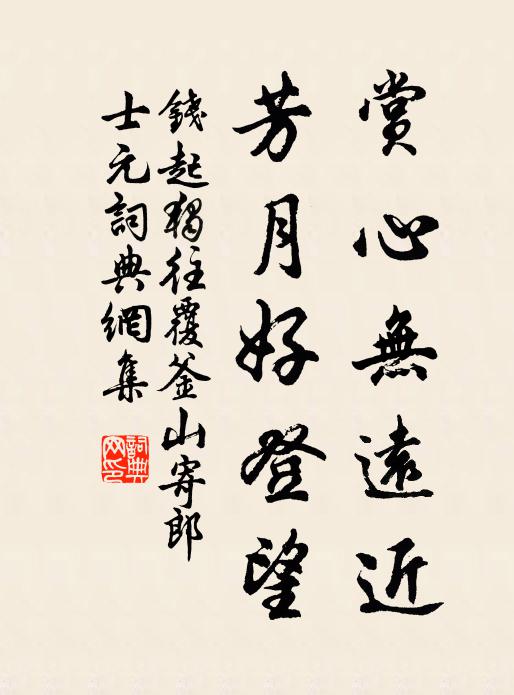 賞心無遠近
芳月好登望
錢起獨往覆釜山寄郎
士元詞典網集
詞典网印